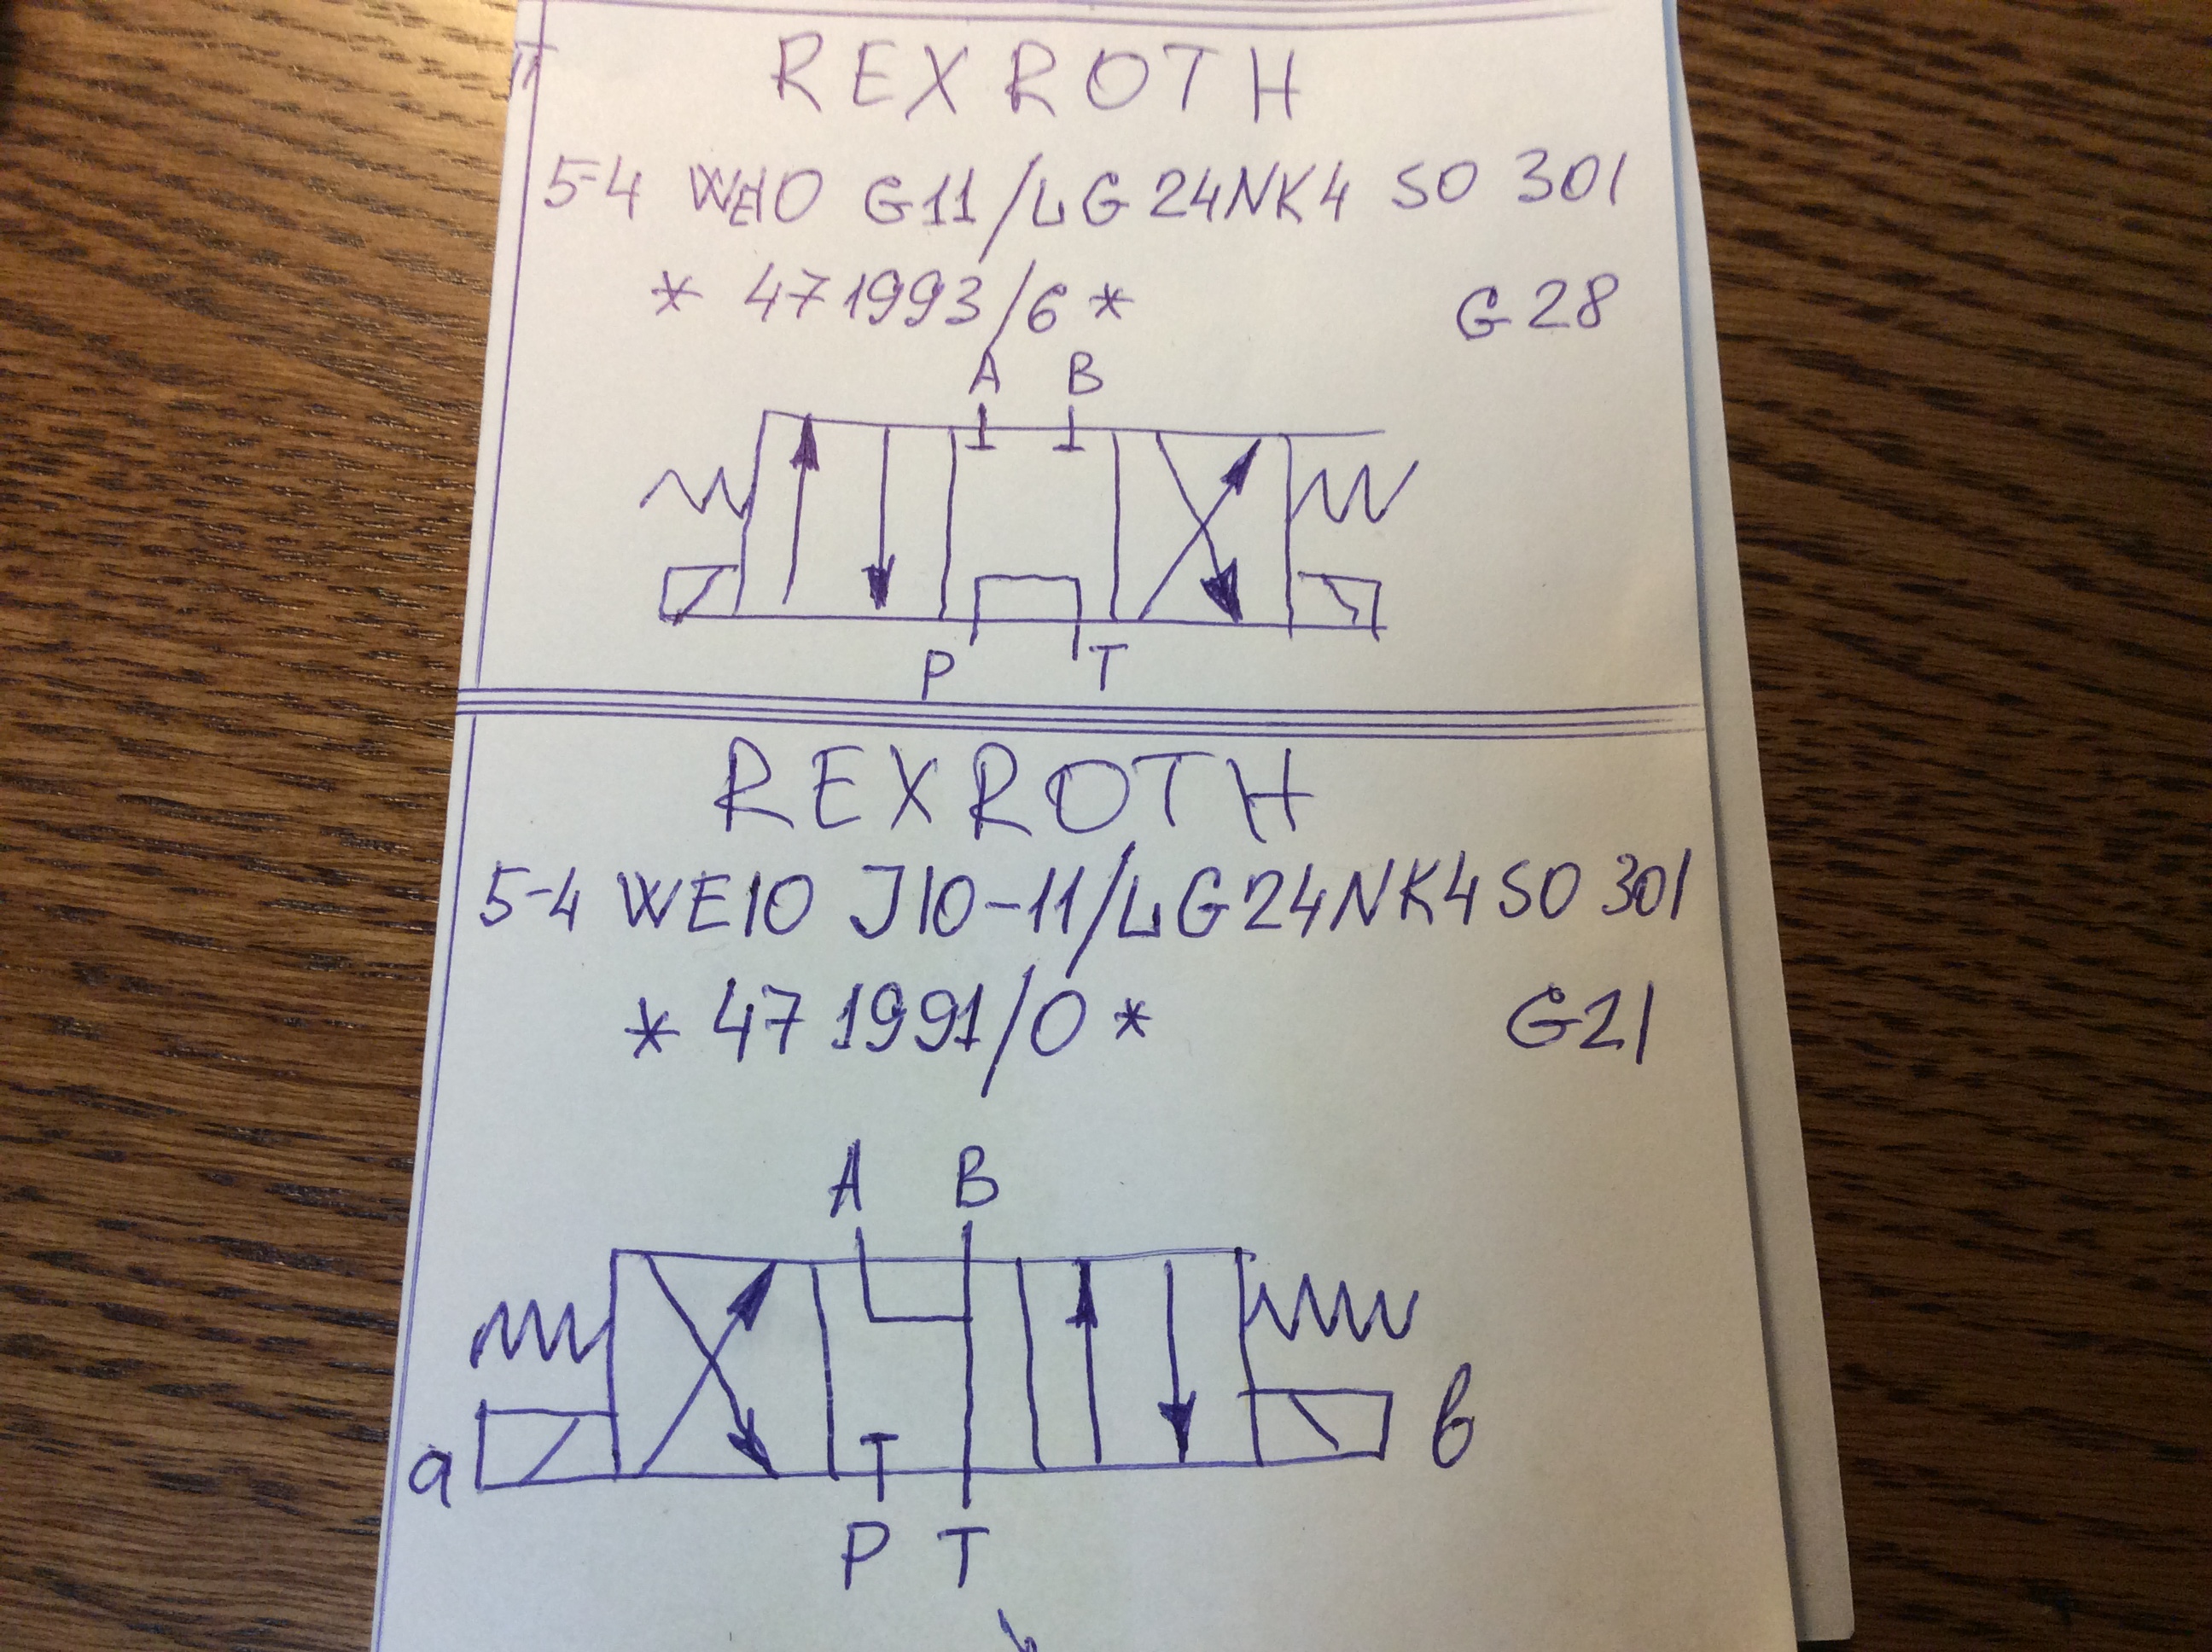 REXROTH
5-4 WE10 G11/LG24NK4 SO 301
* 47 1993/6 * G28
A B
P T
REXROTH
5-4 WE10 J10-11/LG24NK4 SO 301
* 47 1991/0 * G21
A B
a в
P T